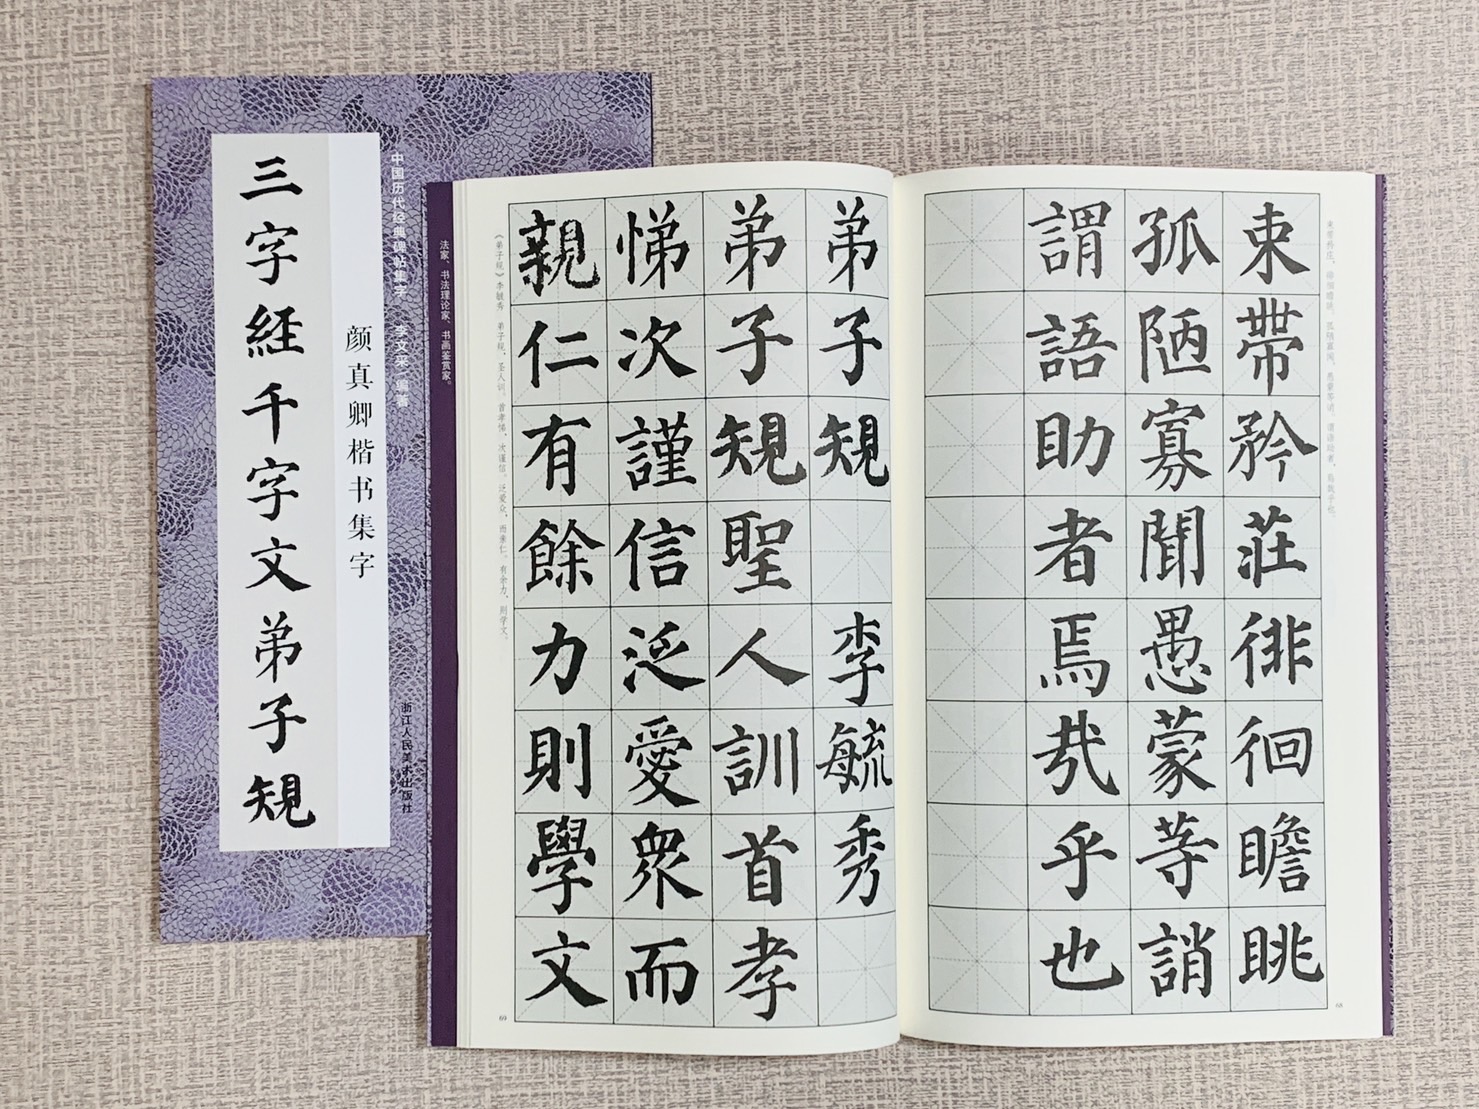 三字经千字文弟子规
颜真卿楷书集字
中国历代经典碑帖集字 李文采 编著
浙江人民美术出版社
束帶矜莊徘徊瞻眺
孤陋寡聞愚蒙等誚
謂語助者焉哉乎也
束带矜庄，徘徊瞻眺。孤陋寡闻，愚蒙等诮。谓语助者，焉哉乎也。
68
弟子規 李毓秀
弟子規聖人訓首孝
悌次謹信泛愛衆而
親仁有餘力則學文
《弟子规》李毓秀 弟子规，圣人训。首孝悌，次谨信。泛爱众，而亲仁。有余力，则学文。
69
法家、书法理论家、书画鉴赏家。